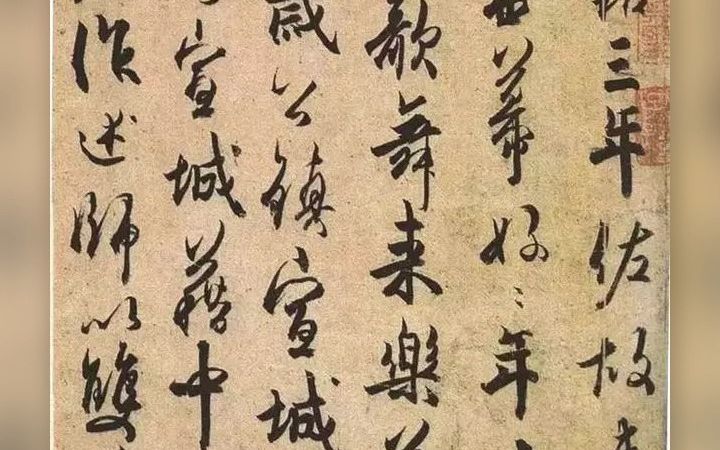 三年佐故
西幕好〻年
歌舞来樂
歲公鎮宣城
宣城藉中
作述師以雙